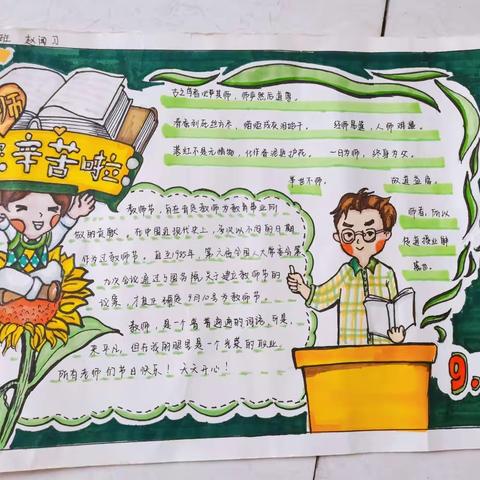 班 赵润习
师
辛苦啦
古之学者必有师,师严然后道尊。
春蚕到死丝方尽,蜡炬成灰泪始干。 经师易遇,人师难遇。
落红不是无情物,化作春泥更护花。 一日为师,终身为父。
半世不师。 故道益隔。
师者,所以
传道授业解
惑也。
教师节,旨在肯定教师为教育事业所
做的贡献。在中国近现代史上,多次以不同的日期
作为过教师节。直至1985年,第六届全国人大常委会第
九次会议通过了国务院关于建立教师节的
议案,才真正确定9月10号为教师节。
教师,是一个普普通通的词语,听起
来平凡,但在我的眼里是一个光荣的职业
所有老师们节日快乐!天天开心!
9.